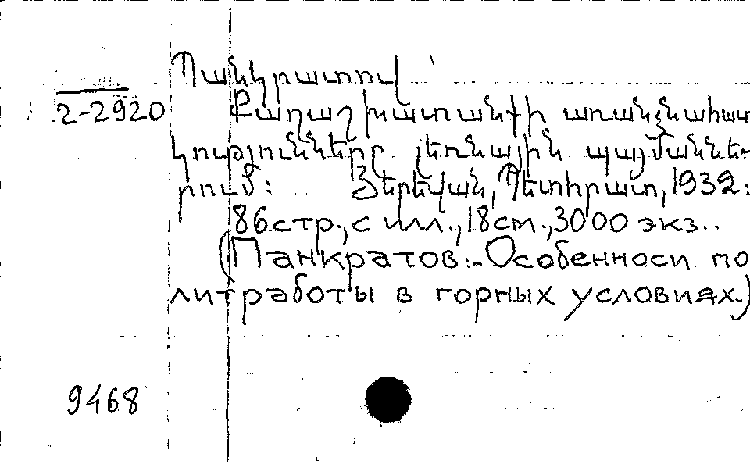 Պանկրատով
2-2920
Քաղաշխատանքի առանձնահատ
կությունները լեռնային պայմաննե-
րում: Յերեվան, Պետհրատ, 1932:
86стр., с илл., 18см., 3000 экз..
(Панкратов:-Особенноси по
литработы в горных условиях.)
9468